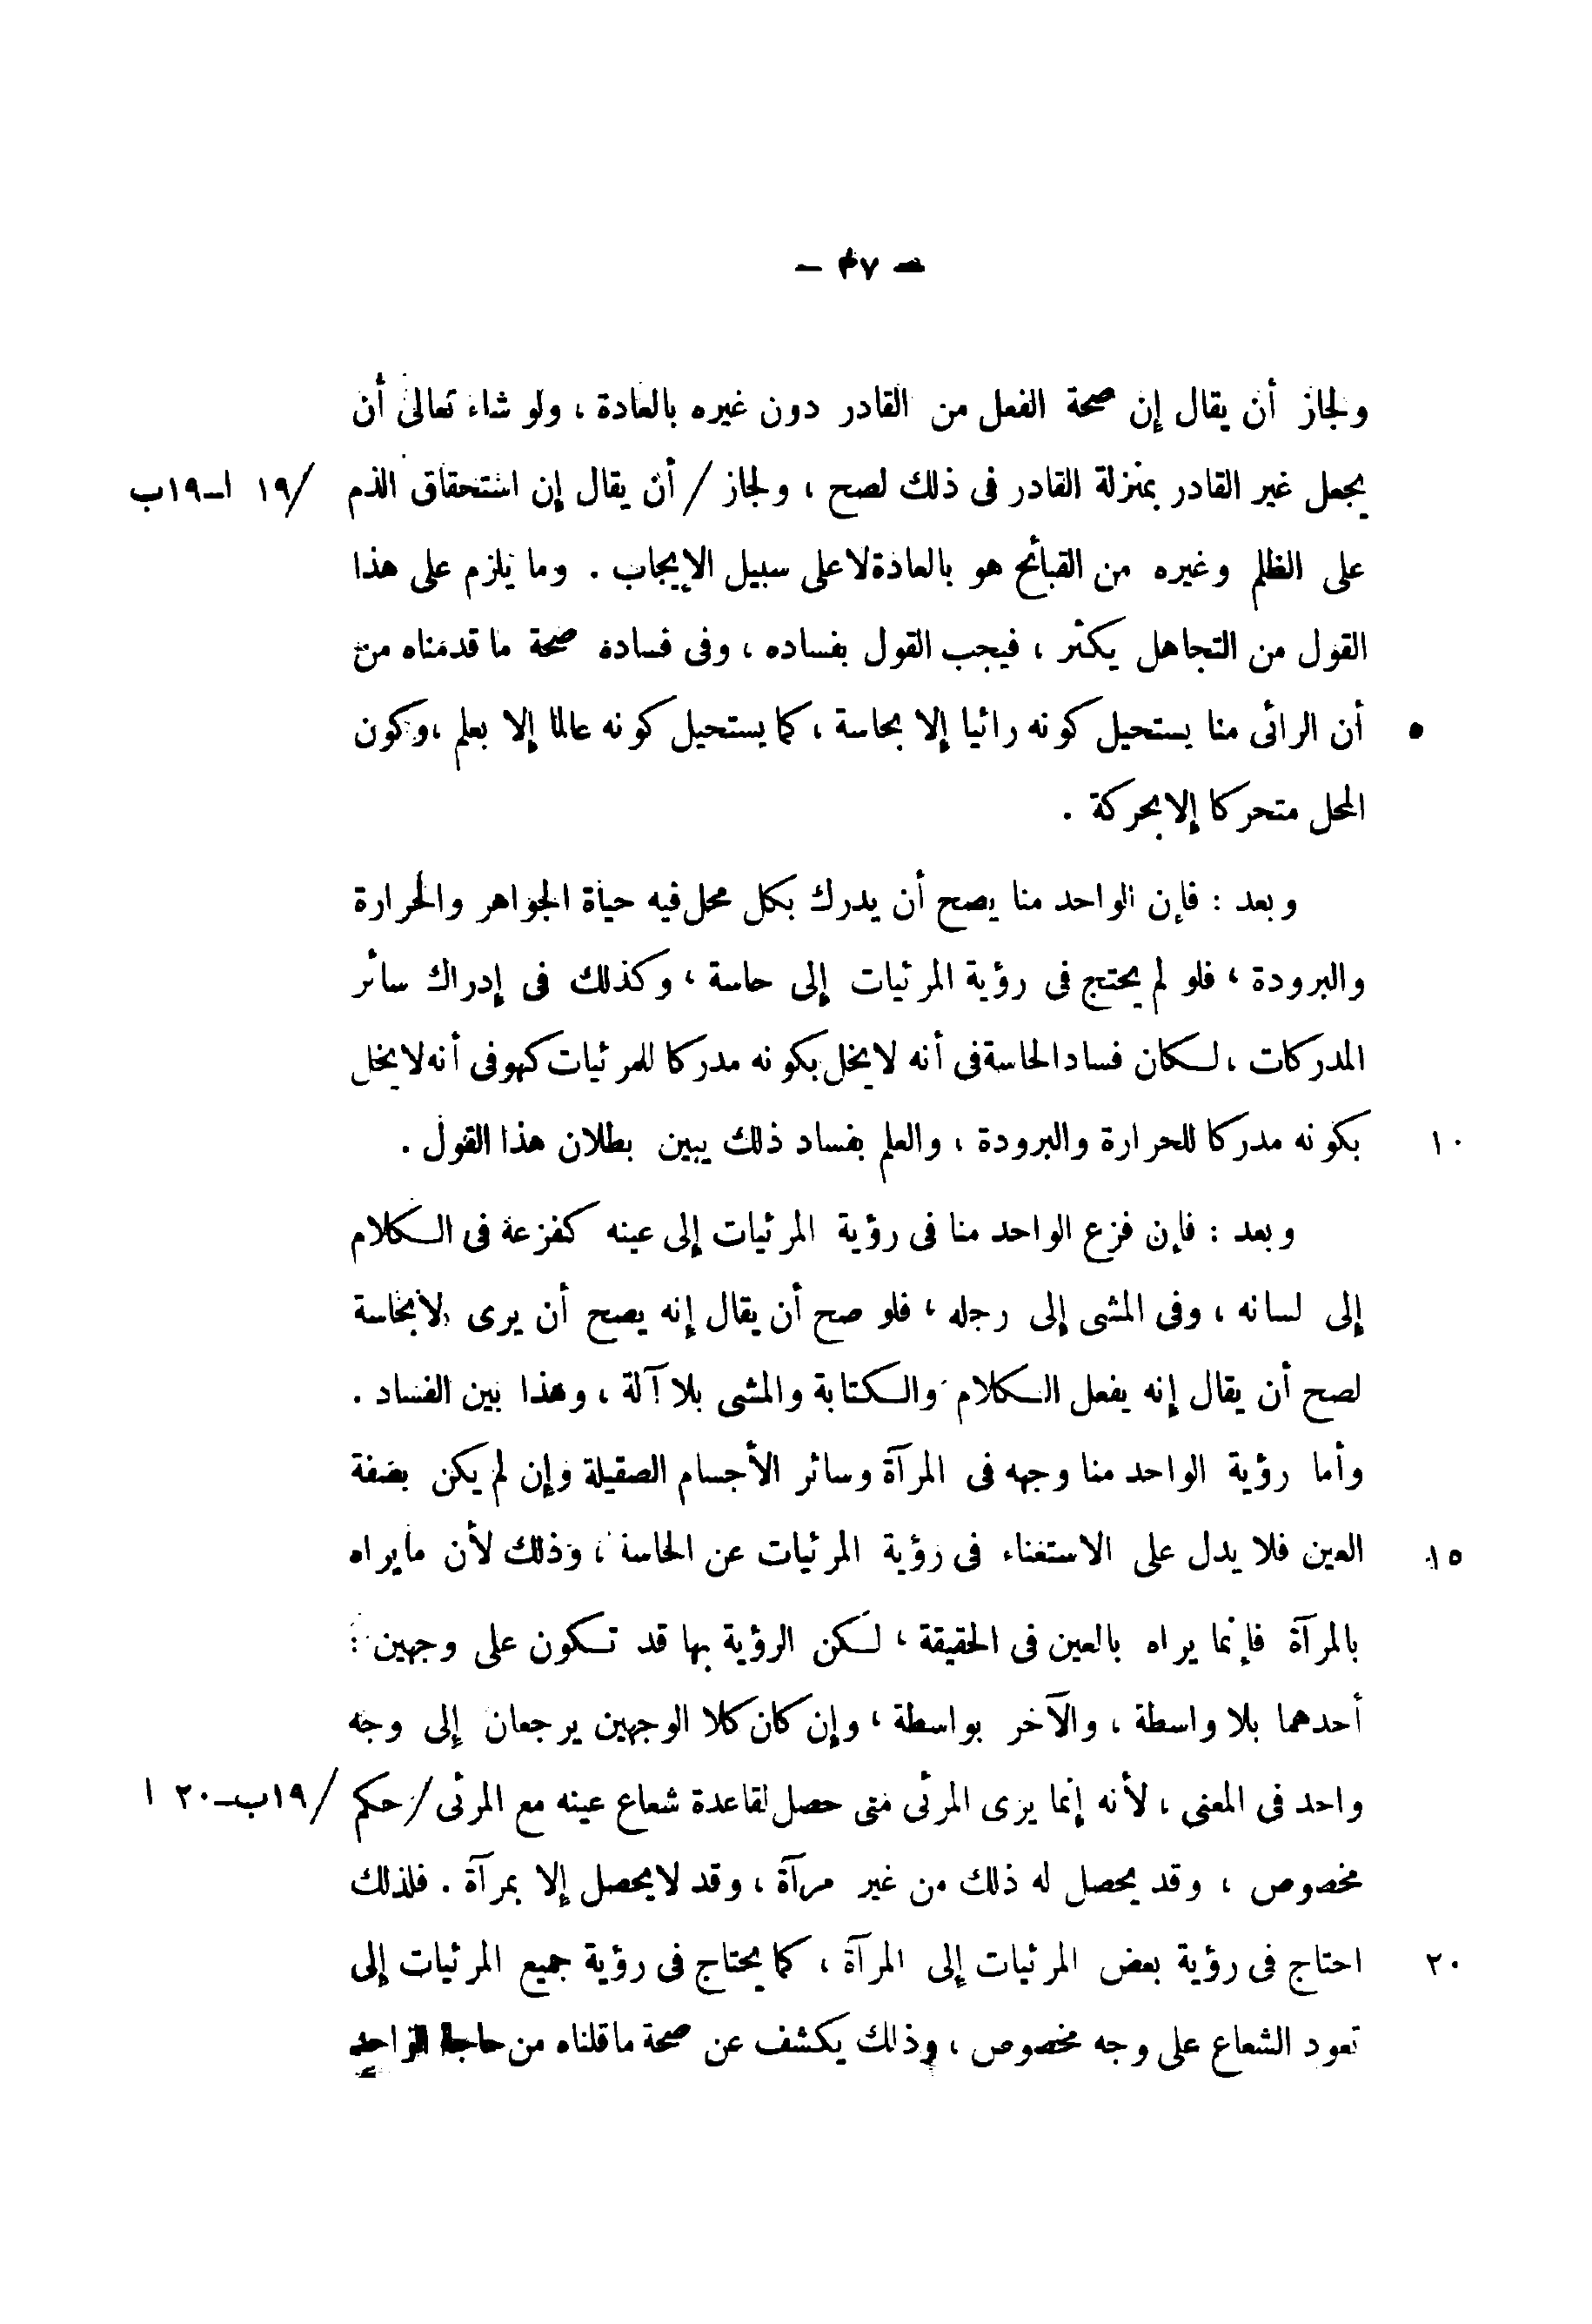 ولجاز أن يقال إن صحة الفعل من القادر دون غيره بالعادة ، ولو شاء تعالى أن
يجعل غير القادر بمنزلة القادر فى ذلك لصح ، ولجاز / أن يقال إن استحقاق الذم /١٩ ا-١٩ب
على الظلم وغيره من القبائح هو بالعادة لا على سبيل الإيجاب . وما يلزم على هذا
القول من التجاهل يكثر ، فيجب القول بفساده ، وفى فساده صحة ما قدمناه من
٥ أن الرائى منا يستحيل كونه رائيا إلا بحاسة ، كما يستحيل كونه عالما إلا بعلم ، وكون
المحل متحركا إلا بحركة .
وبعد : فإن الواحد منا يصح أن يدرك بكل محل فيه حياة الجواهر والحرارة
والبرودة ، فلو لم يحتج فى رؤية المرئيات إلى حاسة ، وكذلك فى إدراك سائر
المدركات ، لكان فساد الحاسة فى أنه لا يخل بكونه مدركا للمرئيات كهو فى أنه لا يخل
١٠ بكونه مدركا للحرارة والبرودة ، والعلم بفساد ذلك يبين بطلان هذا القول .
وبعد : فإن فزع الواحد منا فى رؤية المرئيات إلى عينه كفزعه فى الكلام
إلى لسانه ، وفى المشى إلى رجله ، فلو صح أن يقال إنه يصح أن يرى لا بحاسة
لصح أن يقال إنه يفعل الكلام والكتابة والمشى بلا آلة ، وهذا بين الفساد .
وأما رؤية الواحد منا وجهه فى المرآة وسائر الأجسام الصقيلة وإن لم يكن بصفة
١٥ العين فلا يدل على الاستغناء فى رؤية المرئيات عن الحاسة ، وذلك لأن ما يراه
بالمرآة فإنما يراه بالعين فى الحقيقة ، لكن الرؤية بها قد تكون على وجهين :
أحدهما بلا واسطة ، والآخر بواسطة ، وإن كان كلا الوجهين يرجعان إلى وجه
واحد فى المعنى ، لأنه إنما يرى المرئى متى حصل لقاعدة شعاع عينه مع المرئى / حكم /١٩ب-٢٠ ا
مخصوص ، وقد يحصل له ذلك من غير مرآة ، وقد لا يحصل إلا بمرآة . فلذلك
٢٠ احتاج فى رؤية بعض المرئيات إلى المرآة ، كما يحتاج فى رؤية جميع المرئيات إلى
تعود الشعاع على وجه مخصوص ، وذلك يكشف عن صحة ما قلناه من حاجة الواحد